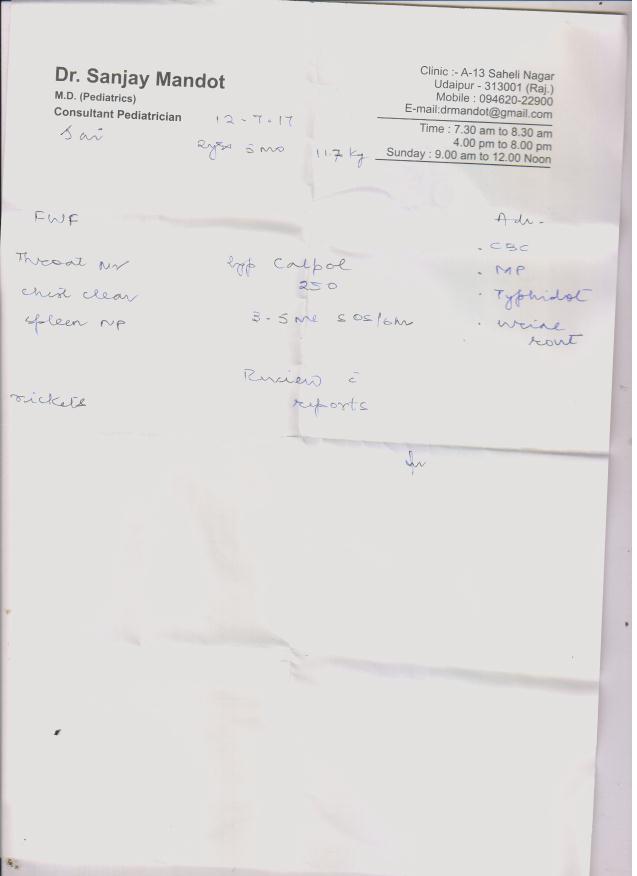 Dr. Sanjay Mandot
M.D. (Pediatrics)
Consultant Pediatrician
Clinic :- A-13 Saheli Nagar
Udaipur - 313001 (Raj.)
Mobile : 094620-22900
E-mail:drmandot@gmail.com
Time : 7.30 am to 8.30 am
4.00 pm to 8.00 pm
Sunday : 9.00 am to 12.00 Noon
12-7-17
Sai
2yrs 5mo 11.7 kg
FWF
Throat Nr
chest clear
spleen NP
rickets
syp Calpol
250
3-5ml SOS/6hr
Review c̄
reports
Adv-
. CBC
. MP
. Typhidot
. urine
rout